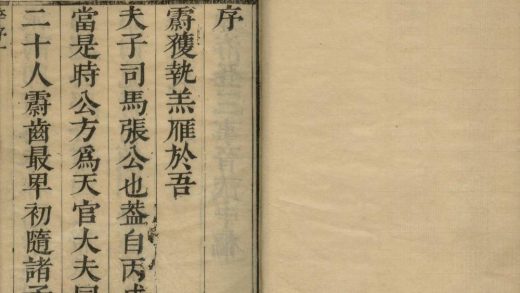 序
霨獲執羔雁於吾
夫子司馬張公也葢自丙戌
當是時公方爲天官大夫
二十人霨齒最卑初隨諸